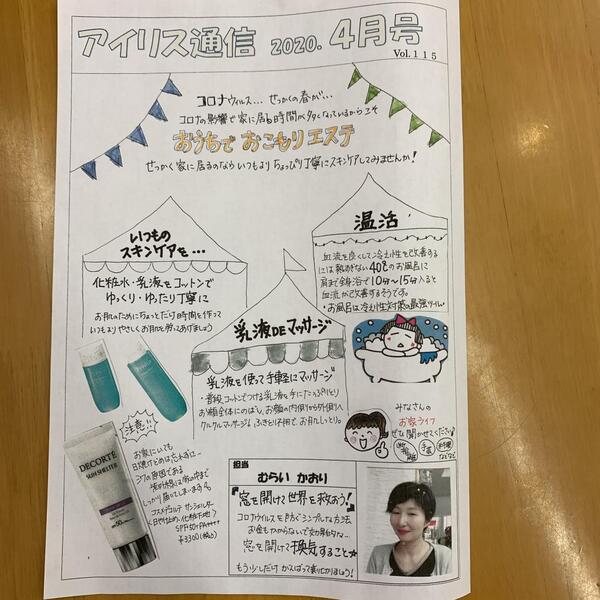 アイリス通信 2020. 4月号
Vol.115
コロナウィルス... せっかくの春が...
コロナの影響で家に居る時間が多くなっているからこそ
おうちで おこもりエステ
せっかく家に居るのなら いつもより ちょっぴり丁寧にスキンケアしてみませんか!
いつもの
スキンケアを...
化粧水・乳液をコットンで
ゆっくり・ゆったり丁寧に
お肌のためにちょっとだけ時間を作って
いつもよりやさしくお肌を労ってあげましょう
温活
血流を良くして冷え性を改善する
には熱すぎない40℃のお風呂に
肩まで全身浴で10分〜15分入ると
血流が改善するそうです。
・お風呂は冷え性対策の最強ツール・
乳液DEマッサージ
乳液を使って手軽にマッサージ
・普段コットンでつける乳液を手にたっぷりとり
お顔全体にのばし、お顔の内側から外側へ
クルクルマッサージ♪ふきとり不用で、お肌しっとり。
注意!!
お家にいても
日焼け止めは忘れずに…
シワの原因である
紫外線は家の中まで
しっかり届いてしまいます
コスメデコルテ サンシェルター
<日やけ止め・化粧下地>
SPF50+PA++++
¥3300(税込)
DECORTÉ
SUN SHELTER
みなさんの
お家ライフ
ぜひ聞かせてください
手芸
料理
などなど
担当
むらい かおり
『窓を開けて世界を救おう!』
コロナウイルスを防ぐシンプルな方法
お金もかからないで効果的な…
窓を開けて換気すること☆
もう少しだけ がんばって乗りきりましょう!